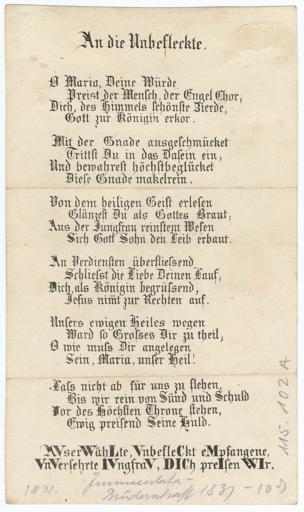 An die Unbefleckte.
O Maria, Deine Würde
Preist der Mensch, der Engel Chor;
Dich, des Himmels schönste Zierde,
Gott zur Königin erkor.
Mit der Gnade ausgeschmücket
Trittst Du in das Dasein ein;
Und bewahrest höchstbeglücket
Diese Gnade makelrein.
Von dem heiligen Geist erlesen
Glänzest Du als Gottes Braut;
Aus der Jungfrau reinstem Wesen
Sich Gott Sohn den Leib erbaut.
An Verdiensten überfliessend,
Schliesst die Liebe Deinen Lauf;
Dich, als Königin begrüssend,
Jesus nim̄t zur Rechten auf.
Unsers ewigen Heiles wegen
Ward so Grosses Dir zu theil;
O wie muss Dir angelegen
Sein, Maria, unser Heil!
Lass nicht ab für uns zu flehen,
Bis wir rein von Sünd und Schuld
Vor des Höchsten Throne stehen,
Ewig preisend Seine Huld.
AVserWähLte, VnbefleCkt eMpfangene,
VnVersehrte IVngfraV, DICh preIsen WIr.
115.102A
1831.
Immaculata-
Bruderschaft 1831